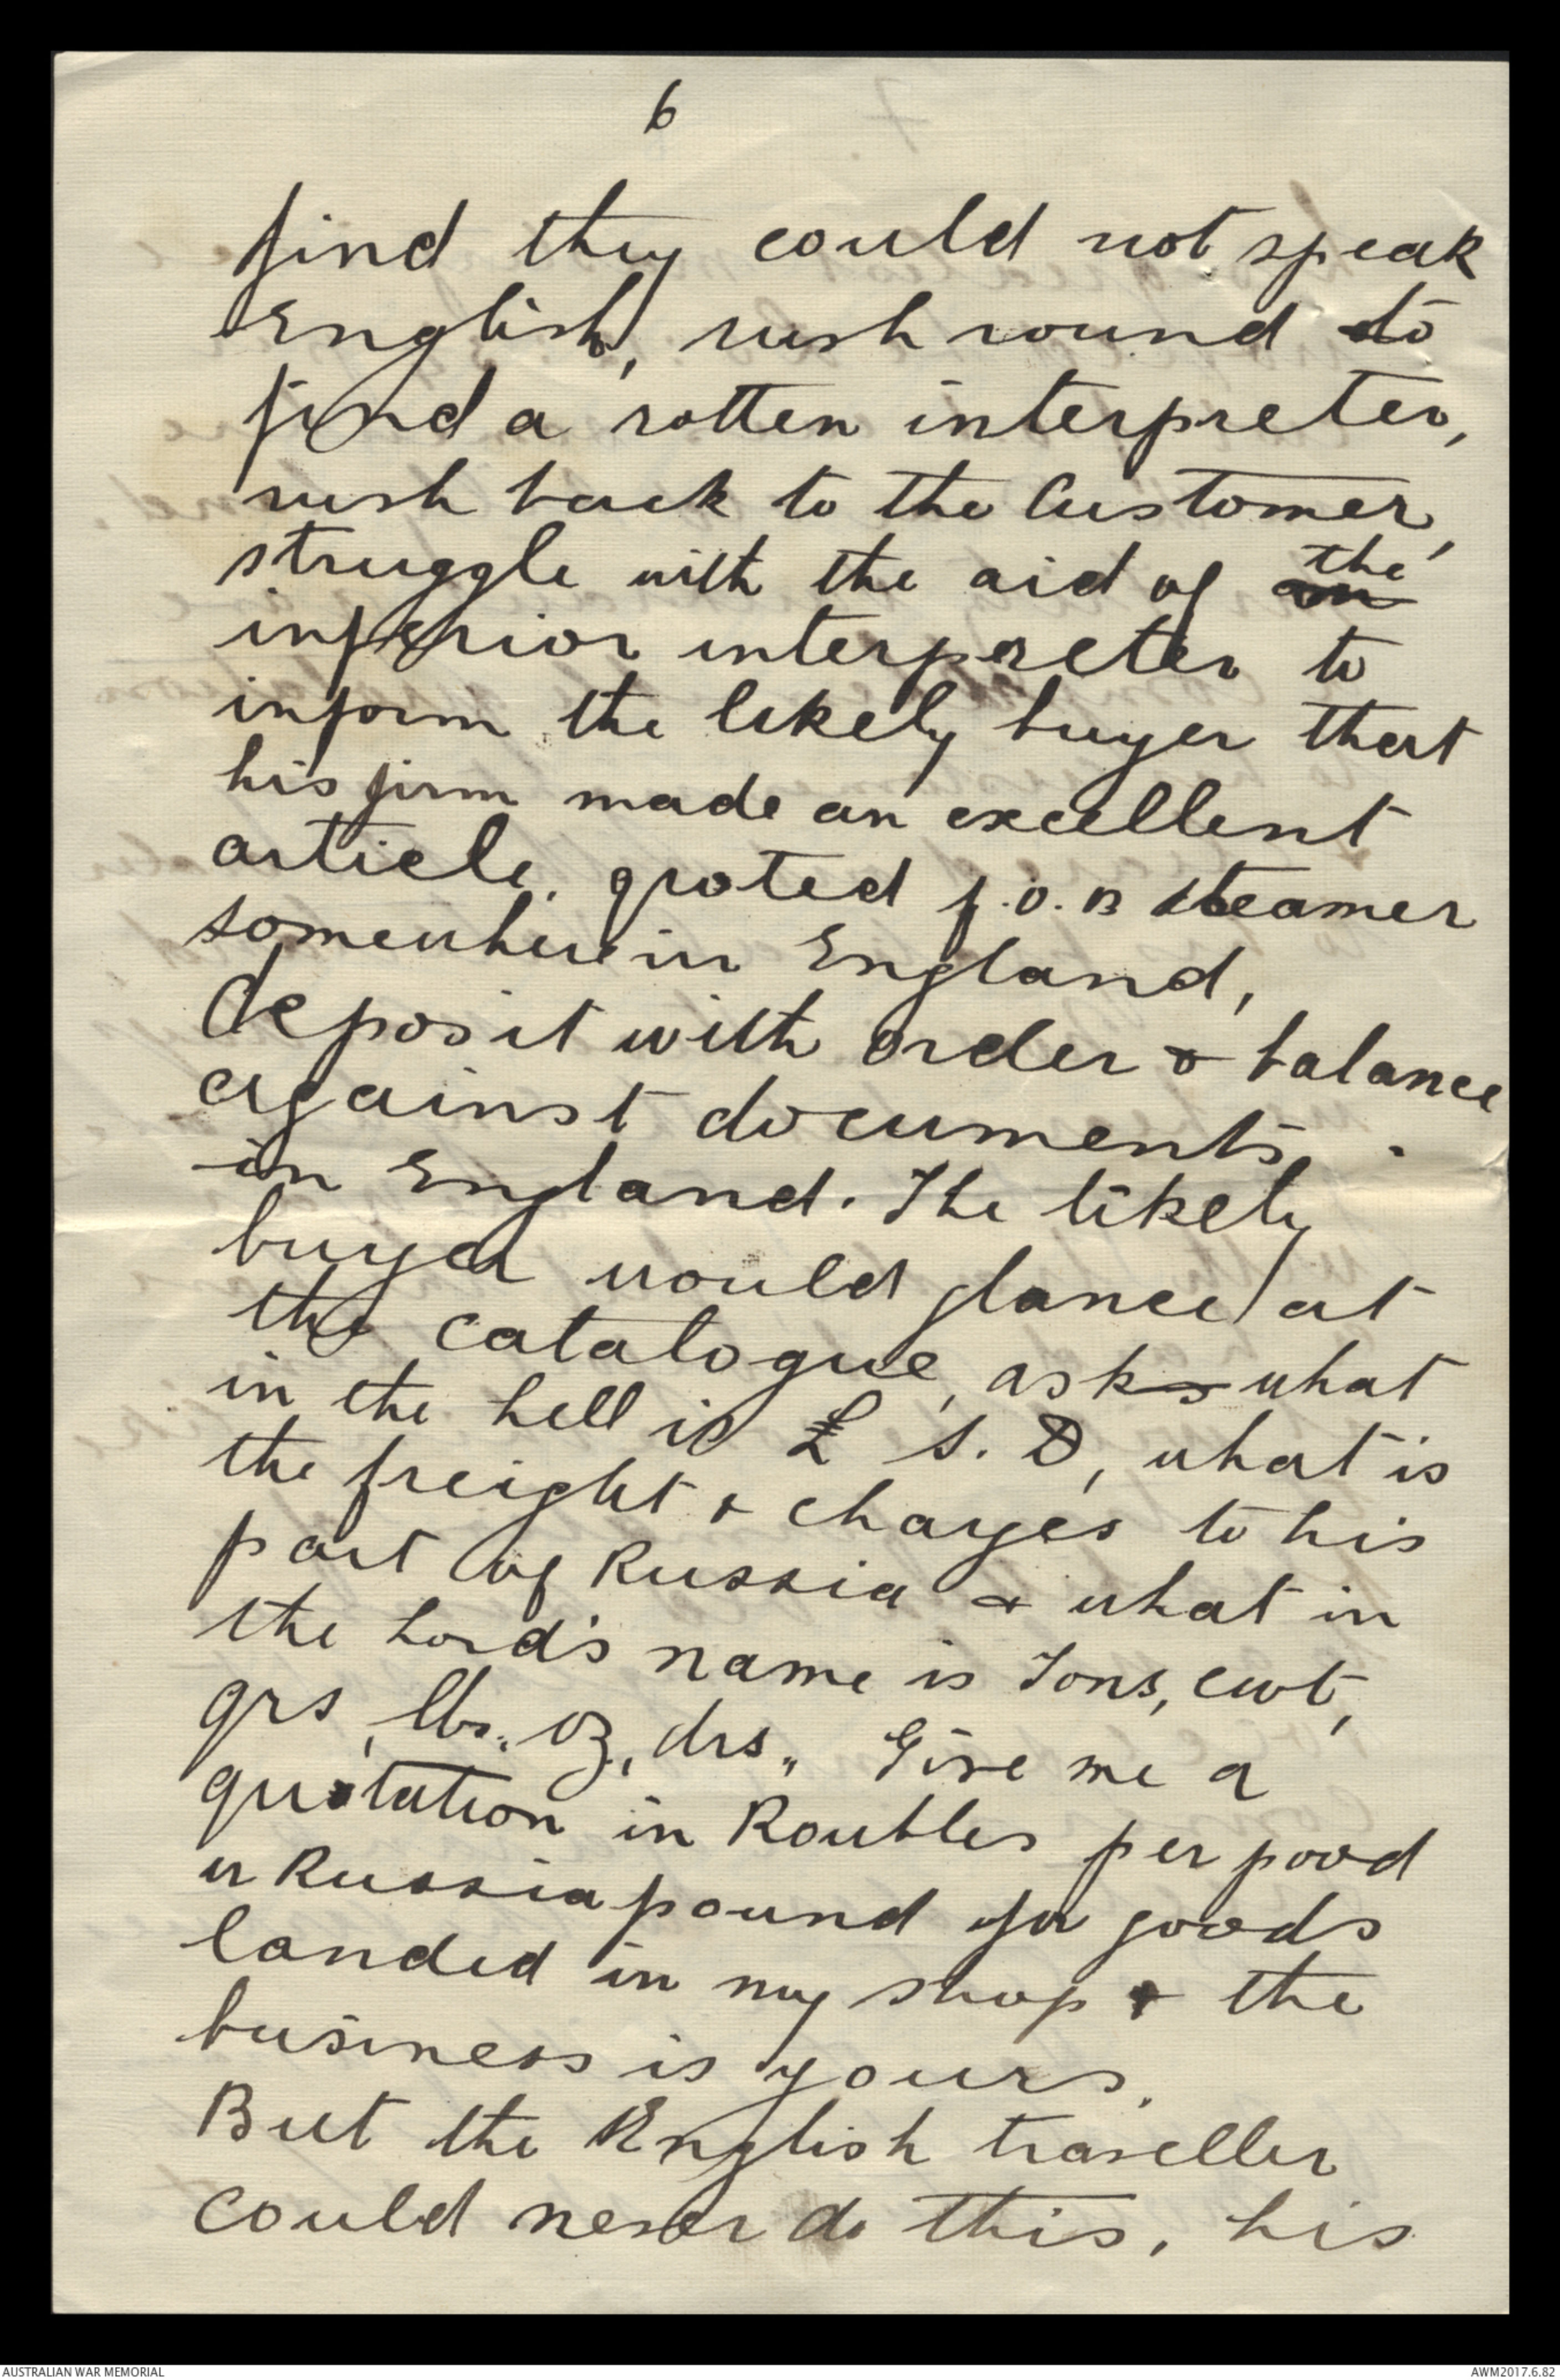 6
find they could not speak
English, rush round to
find a rotten interpreter,
rush back to the Customer,
struggle with the aid of an the
inferior interpreter to
inform the likely buyer that
his firm made an excellent
article, quoted f.o.B steamer
somewhere in England,
deposit with order & balance
against documents.
in England. The likely
buyer would glance at
the catalogue, asks what
in the hell is £ S. D, what is
the freight & charges to his
part of Russia & what in
the Lord's name is Tons, cwt,
qrs, lbs., oz, drs,, Give me a
quotation in Roubles per pood
or Russia pound for goods
landed in my shop & the
business is yours.
But the English traveller
could never do this, his
AUSTRALIAN WAR MEMORIAL
AWM2017.6.82